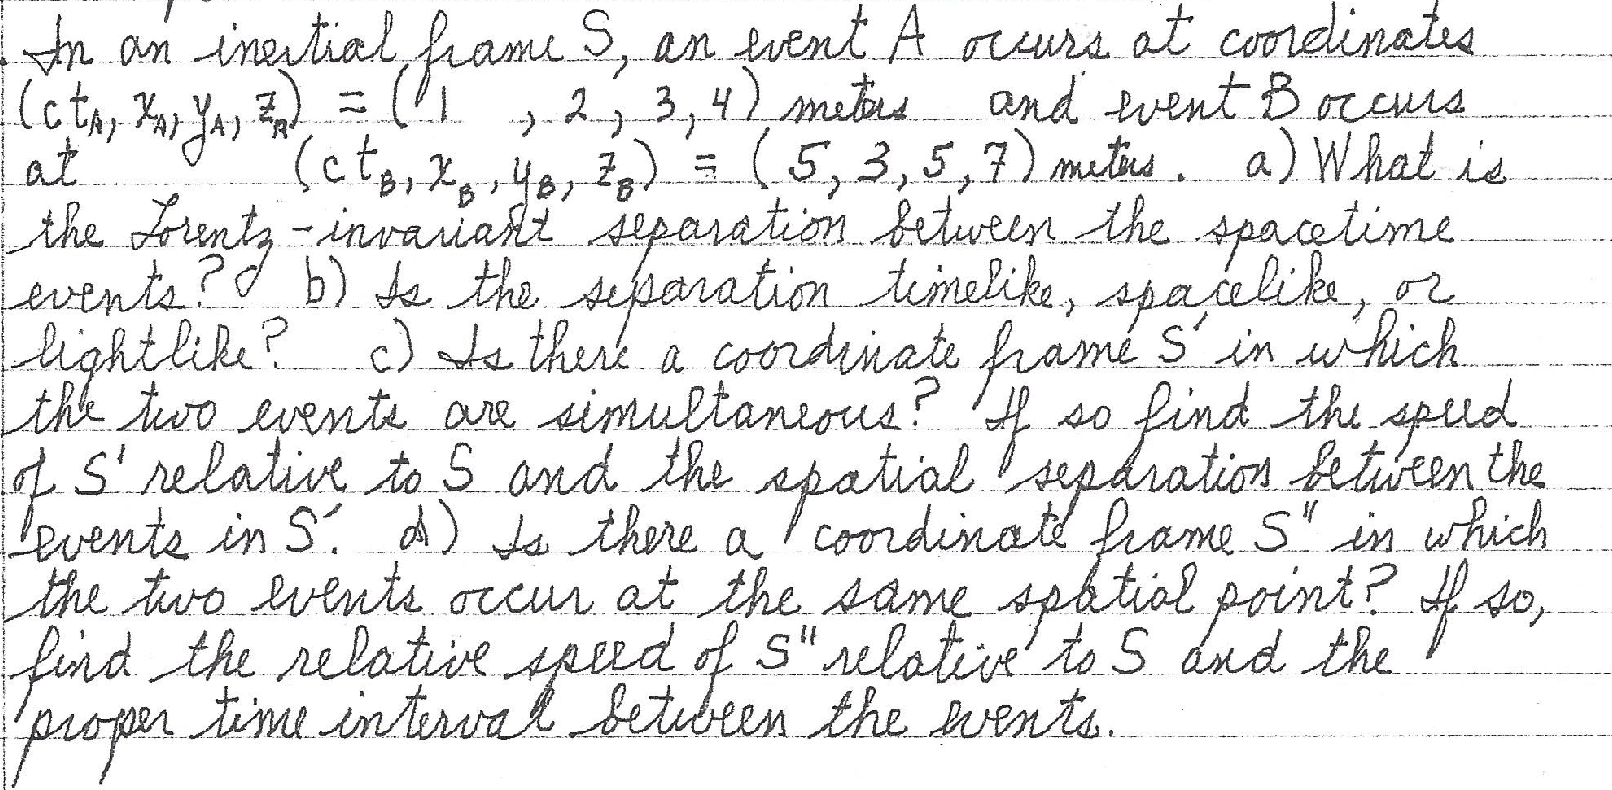 In an inertial frame S, an event A occurs at coordinates
(ctA, xA, yA, zA) = ( 1 , 2, 3, 4) meters and event B occurs
at (ctB, xB, yB, zB) = (5, 3, 5, 7) meters. a) What is
the Lorentz-invariant separation between the spacetime
events? b) Is the separation timelike, spacelike, or
lightlike? c) Is there a coordinate frame S' in which
the two events are simultaneous? If so find the speed
of S' relative to S and the spatial separation between the
events in S'. d) Is there a coordinate frame S" in which
the two events occur at the same spatial point? If so,
find the relative speed of S" relative to S and the
proper time interval between the events.